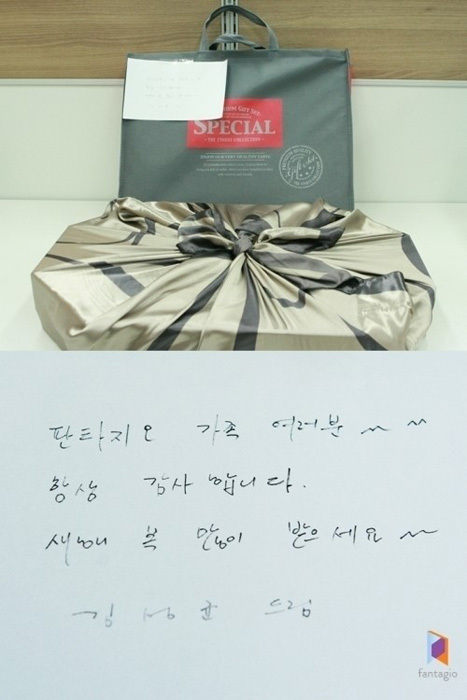 SPECIAL
· THE FINEST COLLECTION ·
판타지오 가족 여러분 ~ ~
항상 감사합니다.
새해 복 많이 받으세요 ~
김성균 드림
fantagio